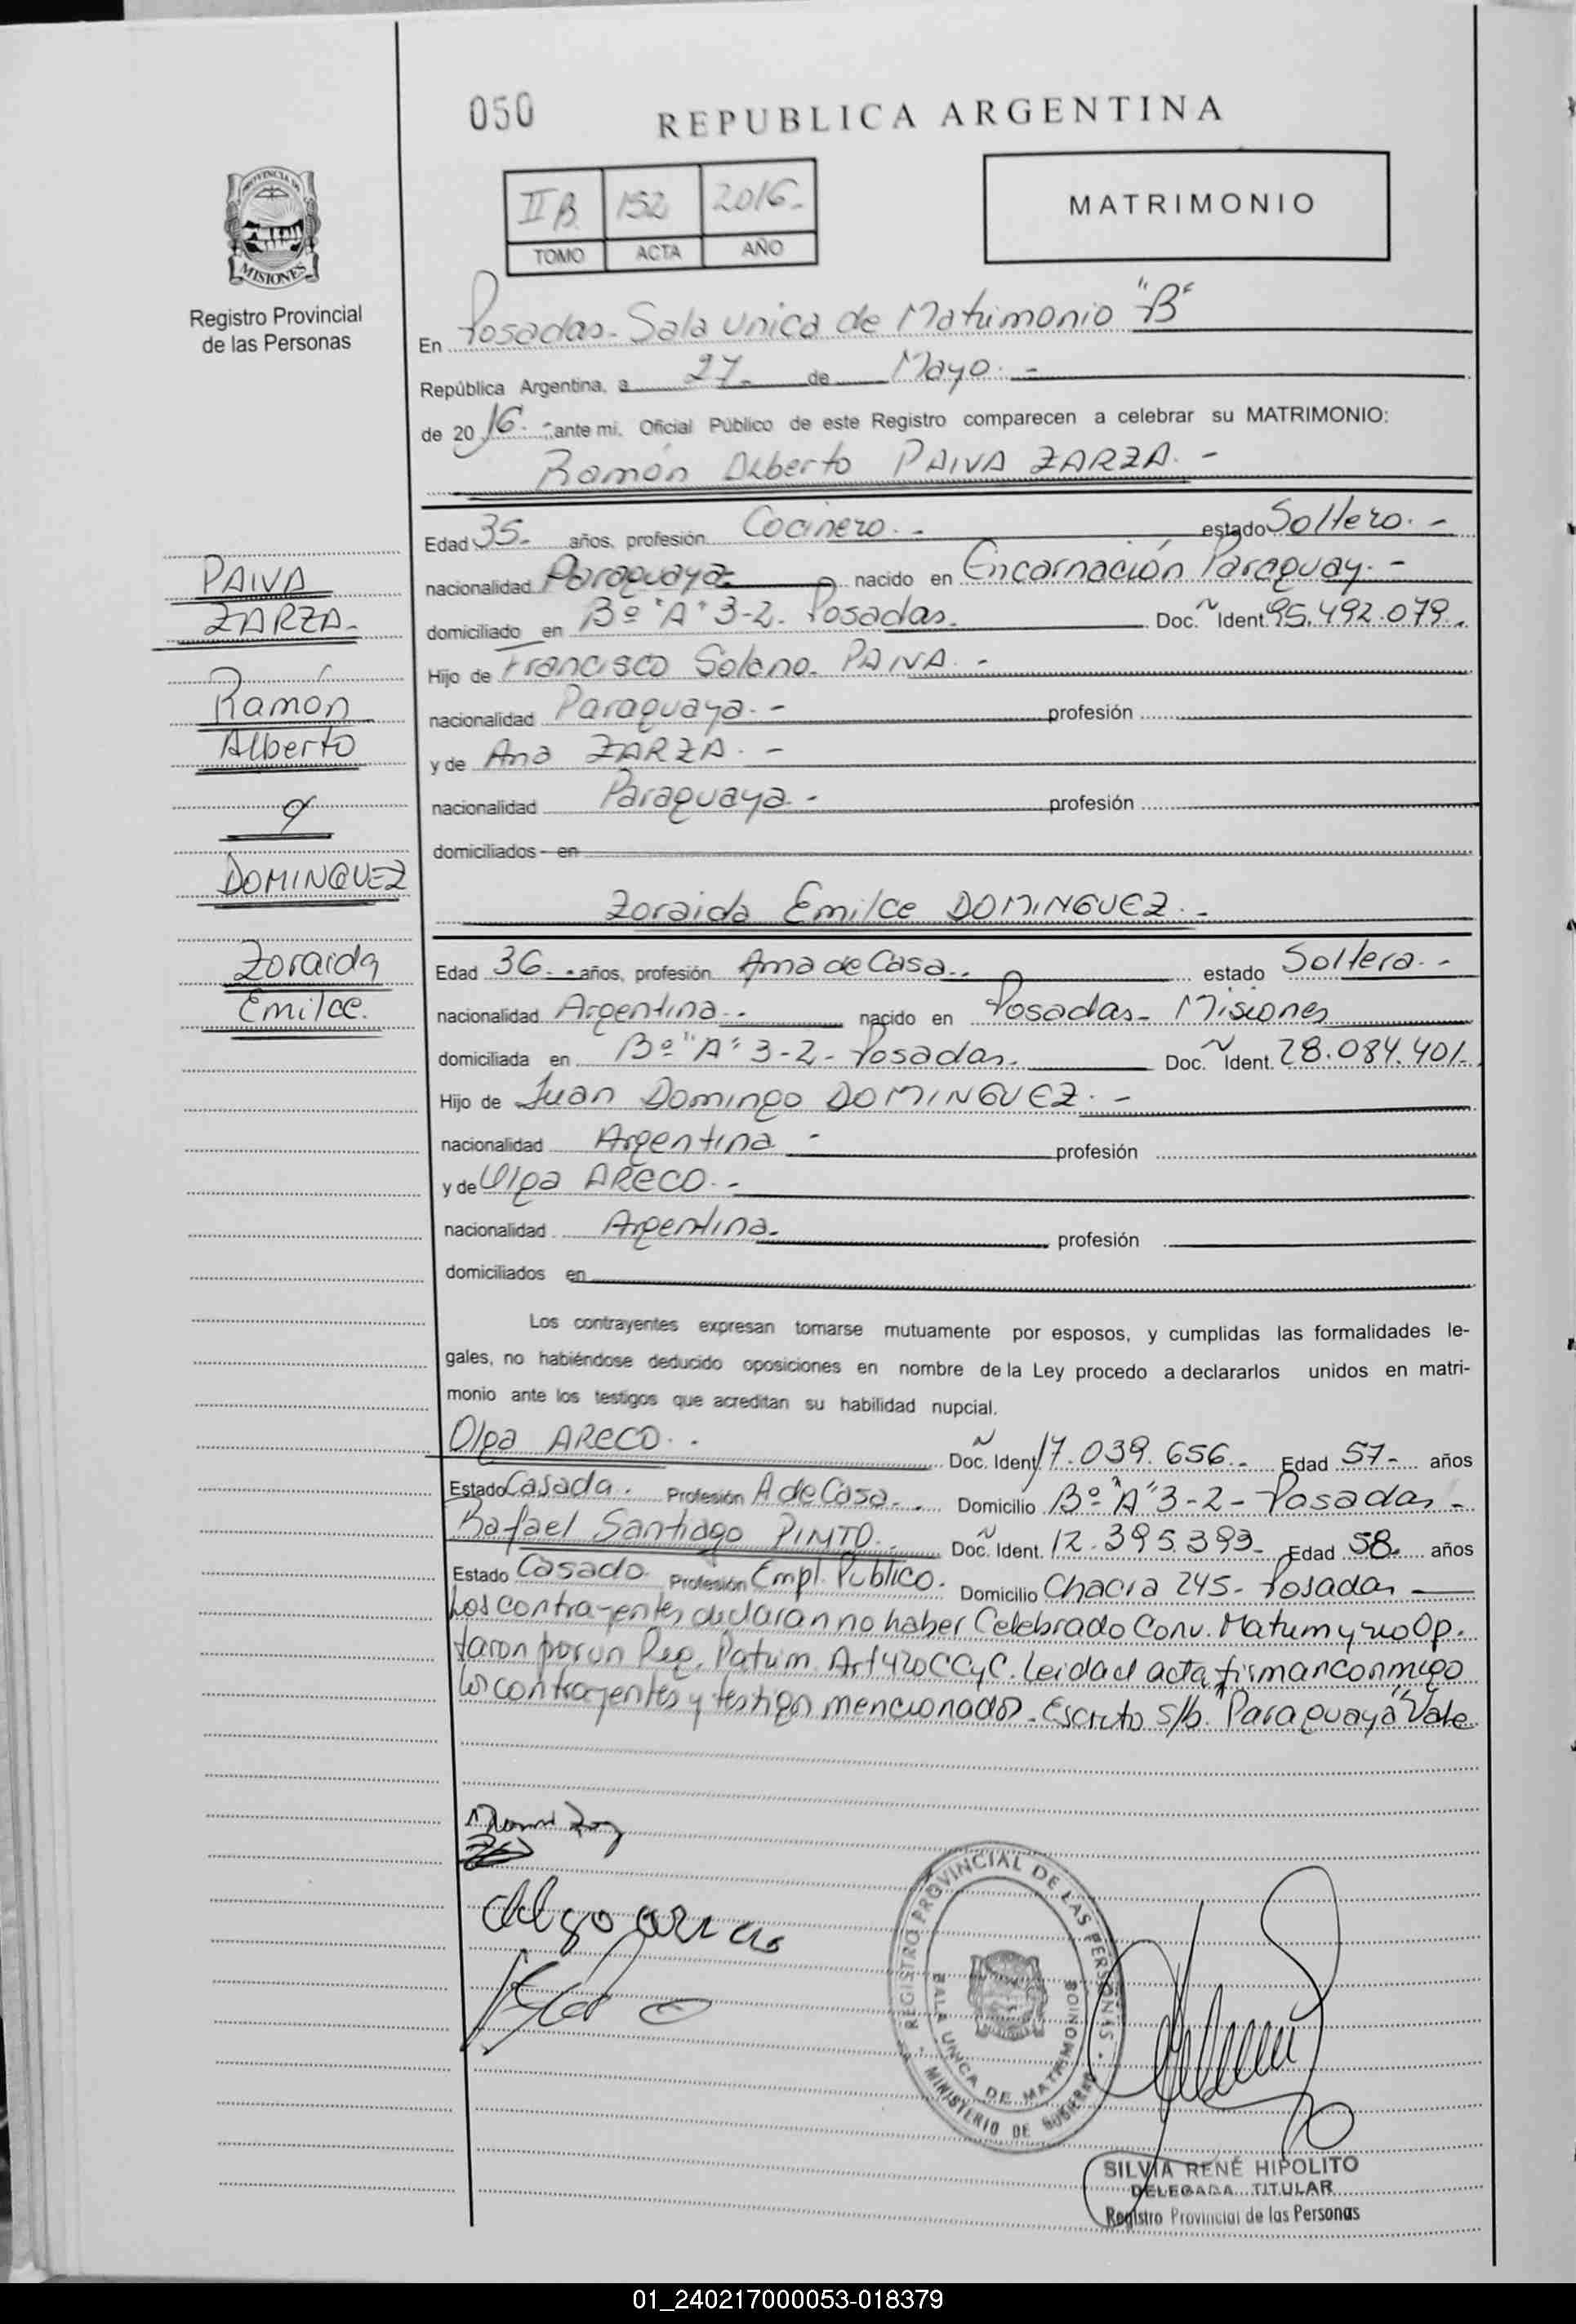 050
REPUBLICA ARGENTINA
PROVINCIA DE
MISIONES
Registro Provincial
de las Personas
II B 152 2016-
TOMO ACTA AÑO
MATRIMONIO
En Posadas- Sala unica de Matrimonio "B"
República Argentina, a 27- de Mayo.-
de 2016.- ante mi, Oficial Público de este Registro comparecen a celebrar su MATRIMONIO:
Ramón Alberto PAIVA ZARZA.-
Edad 35- años, profesión Cocinero.- estado Soltero.-
nacionalidad Paraguaya- nacido en Encarnación Paraguay.-
domiciliado en Bº "A" 3-2. Posadas. Doc. Ident. 95.492.079.
Hijo de Francisco Solano PAIVA.-
nacionalidad Paraguaya.- profesión
y de Ana ZARZA.-
nacionalidad Paraguaya.- profesión
domiciliados en
Zoraida Emilce DOMINGUEZ.-
Edad 36.- años, profesión Ama de Casa.. estado Soltera.-
nacionalidad Argentina.- nacido en Posadas- Misiones
domiciliada en Bº "A" 3-2- Posadas. Doc. Ident. 28.084.401-
Hijo de Juan Domingo DOMINGUEZ.-
nacionalidad Argentina - profesión
y de Olga ARECO.-
nacionalidad Argentina. profesión
domiciliados en
PAIVA
ZARZA-
Ramón
Alberto
y
DOMINGUEZ
Zoraida
Emilce.
Los contrayentes expresan tomarse mutuamente por esposos, y cumplidas las formalidades le-
gales, no habiéndose deducido oposiciones en nombre de la Ley procedo a declararlos unidos en matri-
monio ante los testigos que acreditan su habilidad nupcial.
Olga ARECO.. Doc. Ident. 17.039.656.. Edad 57- años
Estado Casada. Profesión A de Casa.. Domicilio Bº "A" 3-2- Posadas-
Rafael Santiago PINTO.. Doc. Ident. 12.395.393- Edad 58. años
Estado Casado. Profesión Empl. Publico. Domicilio Chacra 245- Posadas
Los contrayentes declaran no haber Celebrado Conv. Matrim y no Op.
taron por un Reg. Patrim. Art 420 CCyC. Leida el acta firman conmigo
los contrayentes y testigos mencionados. Escrito s/b. "Paraguaya" Vale
REGISTRO PROVINCIAL DE LAS PERSONAS
SALA UNICA DE MATRIMONIOS
MINISTERIO DE GOBIERNO
SILVIA RENÉ HIPOLITO
DELEGADA TITULAR
Registro Provincial de las Personas
01_240217000053-018379